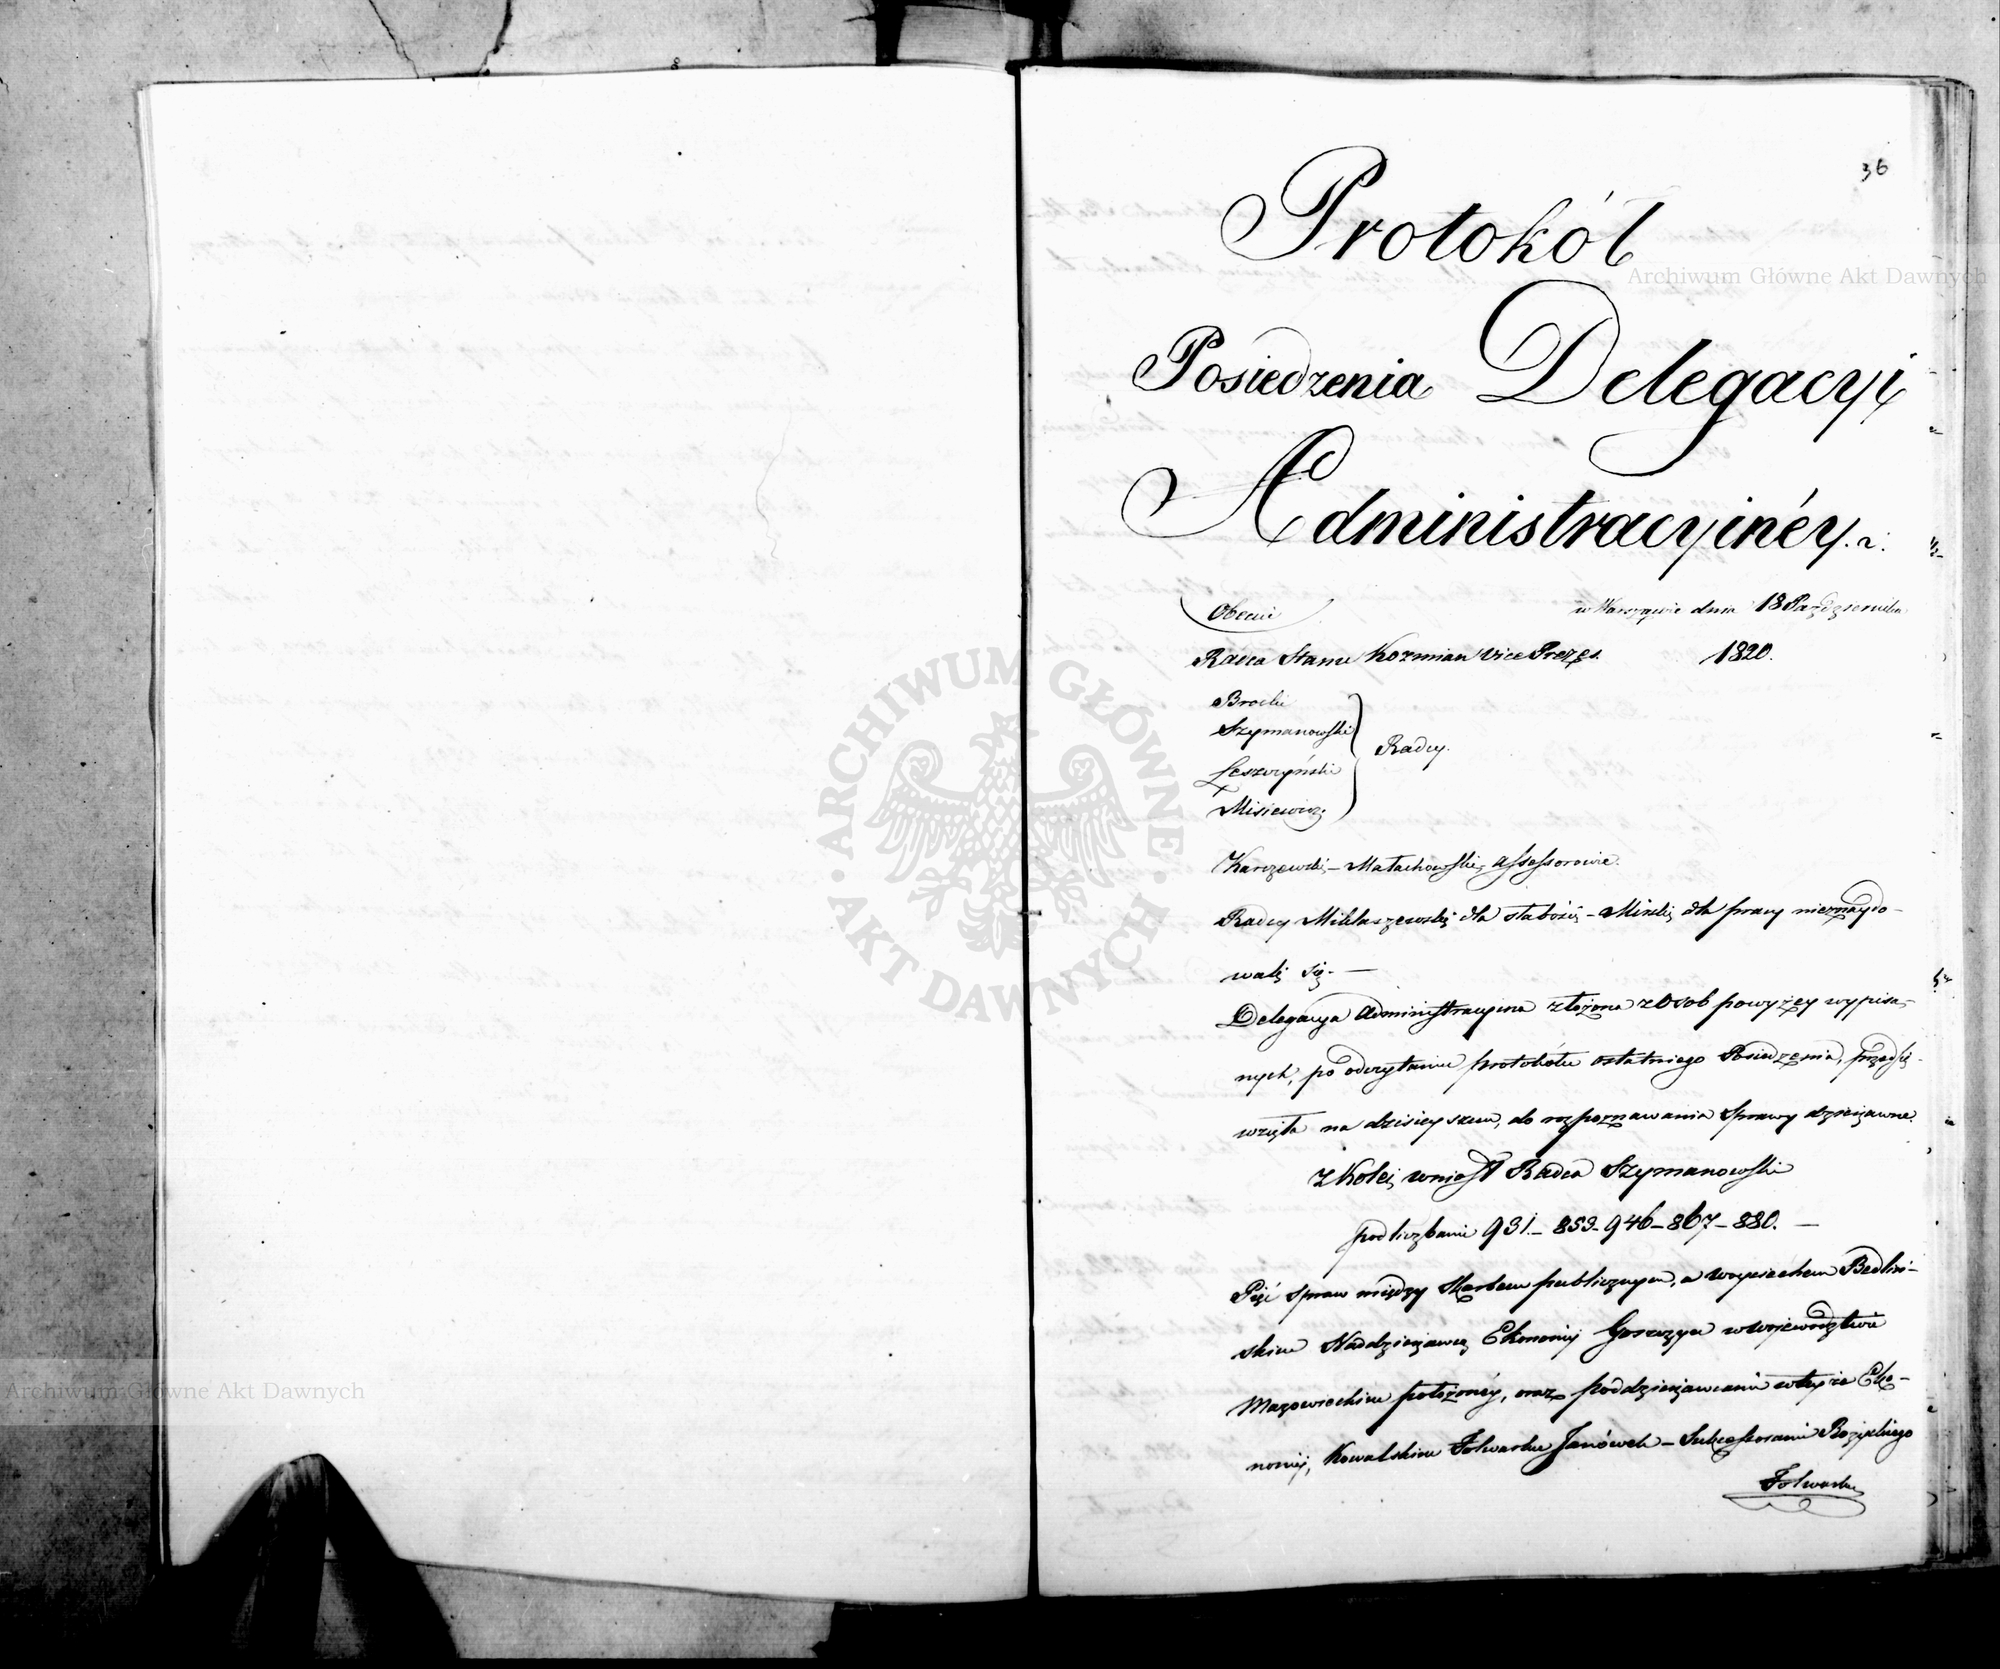 36
Protokół
Archiwum Główne Akt Dawnych
Posiedzenia Delegacyi
Administracyinéy.
Obecni
w Warszawie dnia 18 Października
Radca Stanu Kozmian Vice Prezes.
1820.
Brocki
Szymanowski
Leszczyński
Misiewicz
Radcy.
Karczewski, – Małachowski, assessorowie.
Radcy Miklaszewski dla słabości – Mirski dla pracy nieznaydo-
wali się. —
Delegacya Administracyina złożona z Osob powyżey wypisa-
nych, po odczytaniu protokółu ostatniego Posiedzenia, przedsię-
wzięła na dzisieyszem, do rozpoznawania Sprawy dzierżawne.
Z Kolei wniosł Radca Szymanowski
pod liczbami 931. – 853 – 946 – 867 – 880. —
Pięć spraw między Skarbem publicznym, a Woyciechem Bedliń-
skim Naddzierżawcą Ekonomij Goszczyn w Wojewodztwie
Mazowieckim położonéy, oraz poddzierżawcami w teyże Eko-
nomij, Kowalskim Folwarku Janówek – Sukcessorami Rozyckiego
Folwarku
ARCHIWUM GŁÓWNE · AKT DAWNYCH ·
Archiwum Główne Akt Dawnych